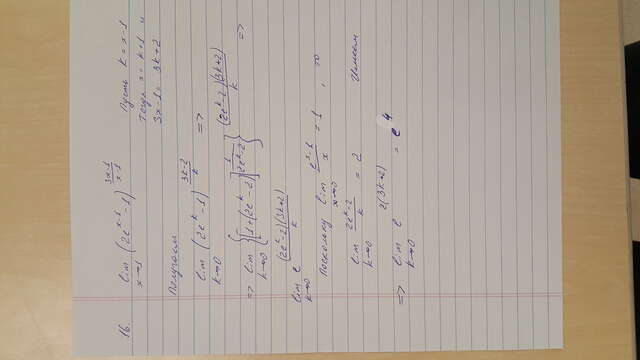 16. lim x→1 (2e^(x-1) -1)^((3x-1)/(x-1)) Пусть k = x-1
Тогда x = k+1 и
3x-1 = 3k+2
Получаем
lim k→0 (2e^k -1)^((3k-2)/k) =>
=> lim k→0 {[1+(2e^k-2)]^(1/(2e^k-2))}^((2e^k-2)(3k+2)/k) =>
lim k→0 e^((2e^k-2)(3k+2)/k)
Поскольку lim x→0 (e^x-1)/x = 1, то
lim k→0 (2e^k-2)/k = 2 Имеем
=> lim k→0 e^(2(3k+2)) = e^4